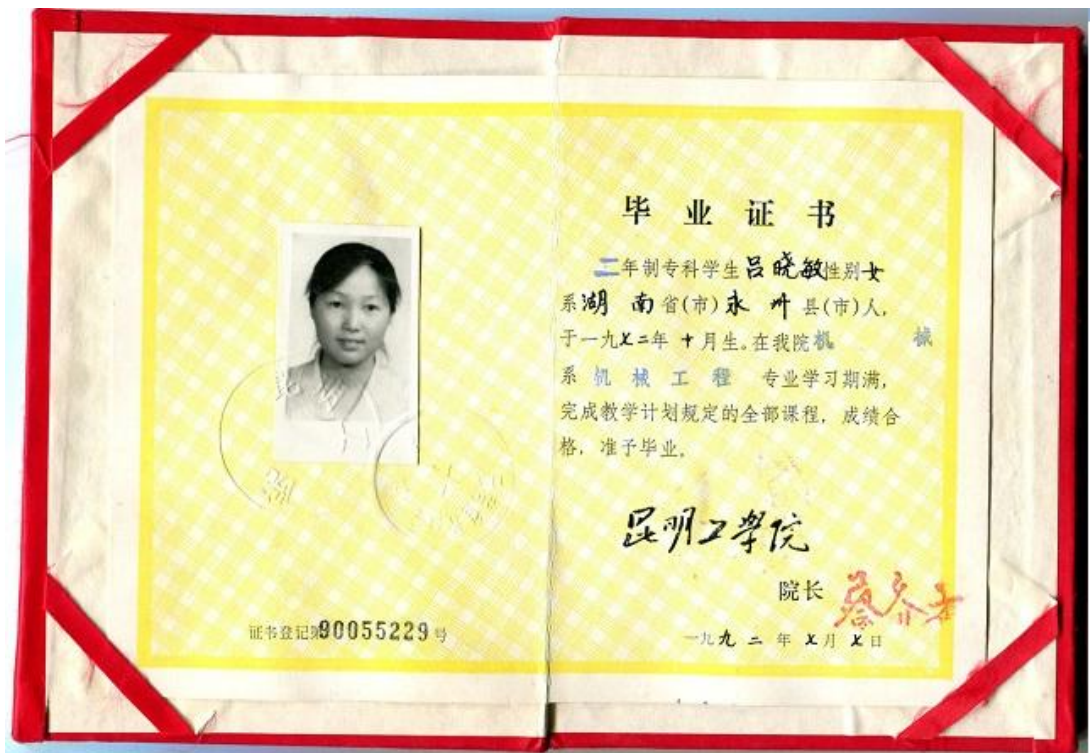 毕业证书
二年制专科学生吕晓敏性别女
系湖南省(市)永州县(市)人,
于一九七二年十月生。在我院机械
系机械工程专业学习期满,
完成教学计划规定的全部课程,成绩合
格,准予毕业。
昆明工学院
院长
一九九二年七月七日
证书登记第90055229号